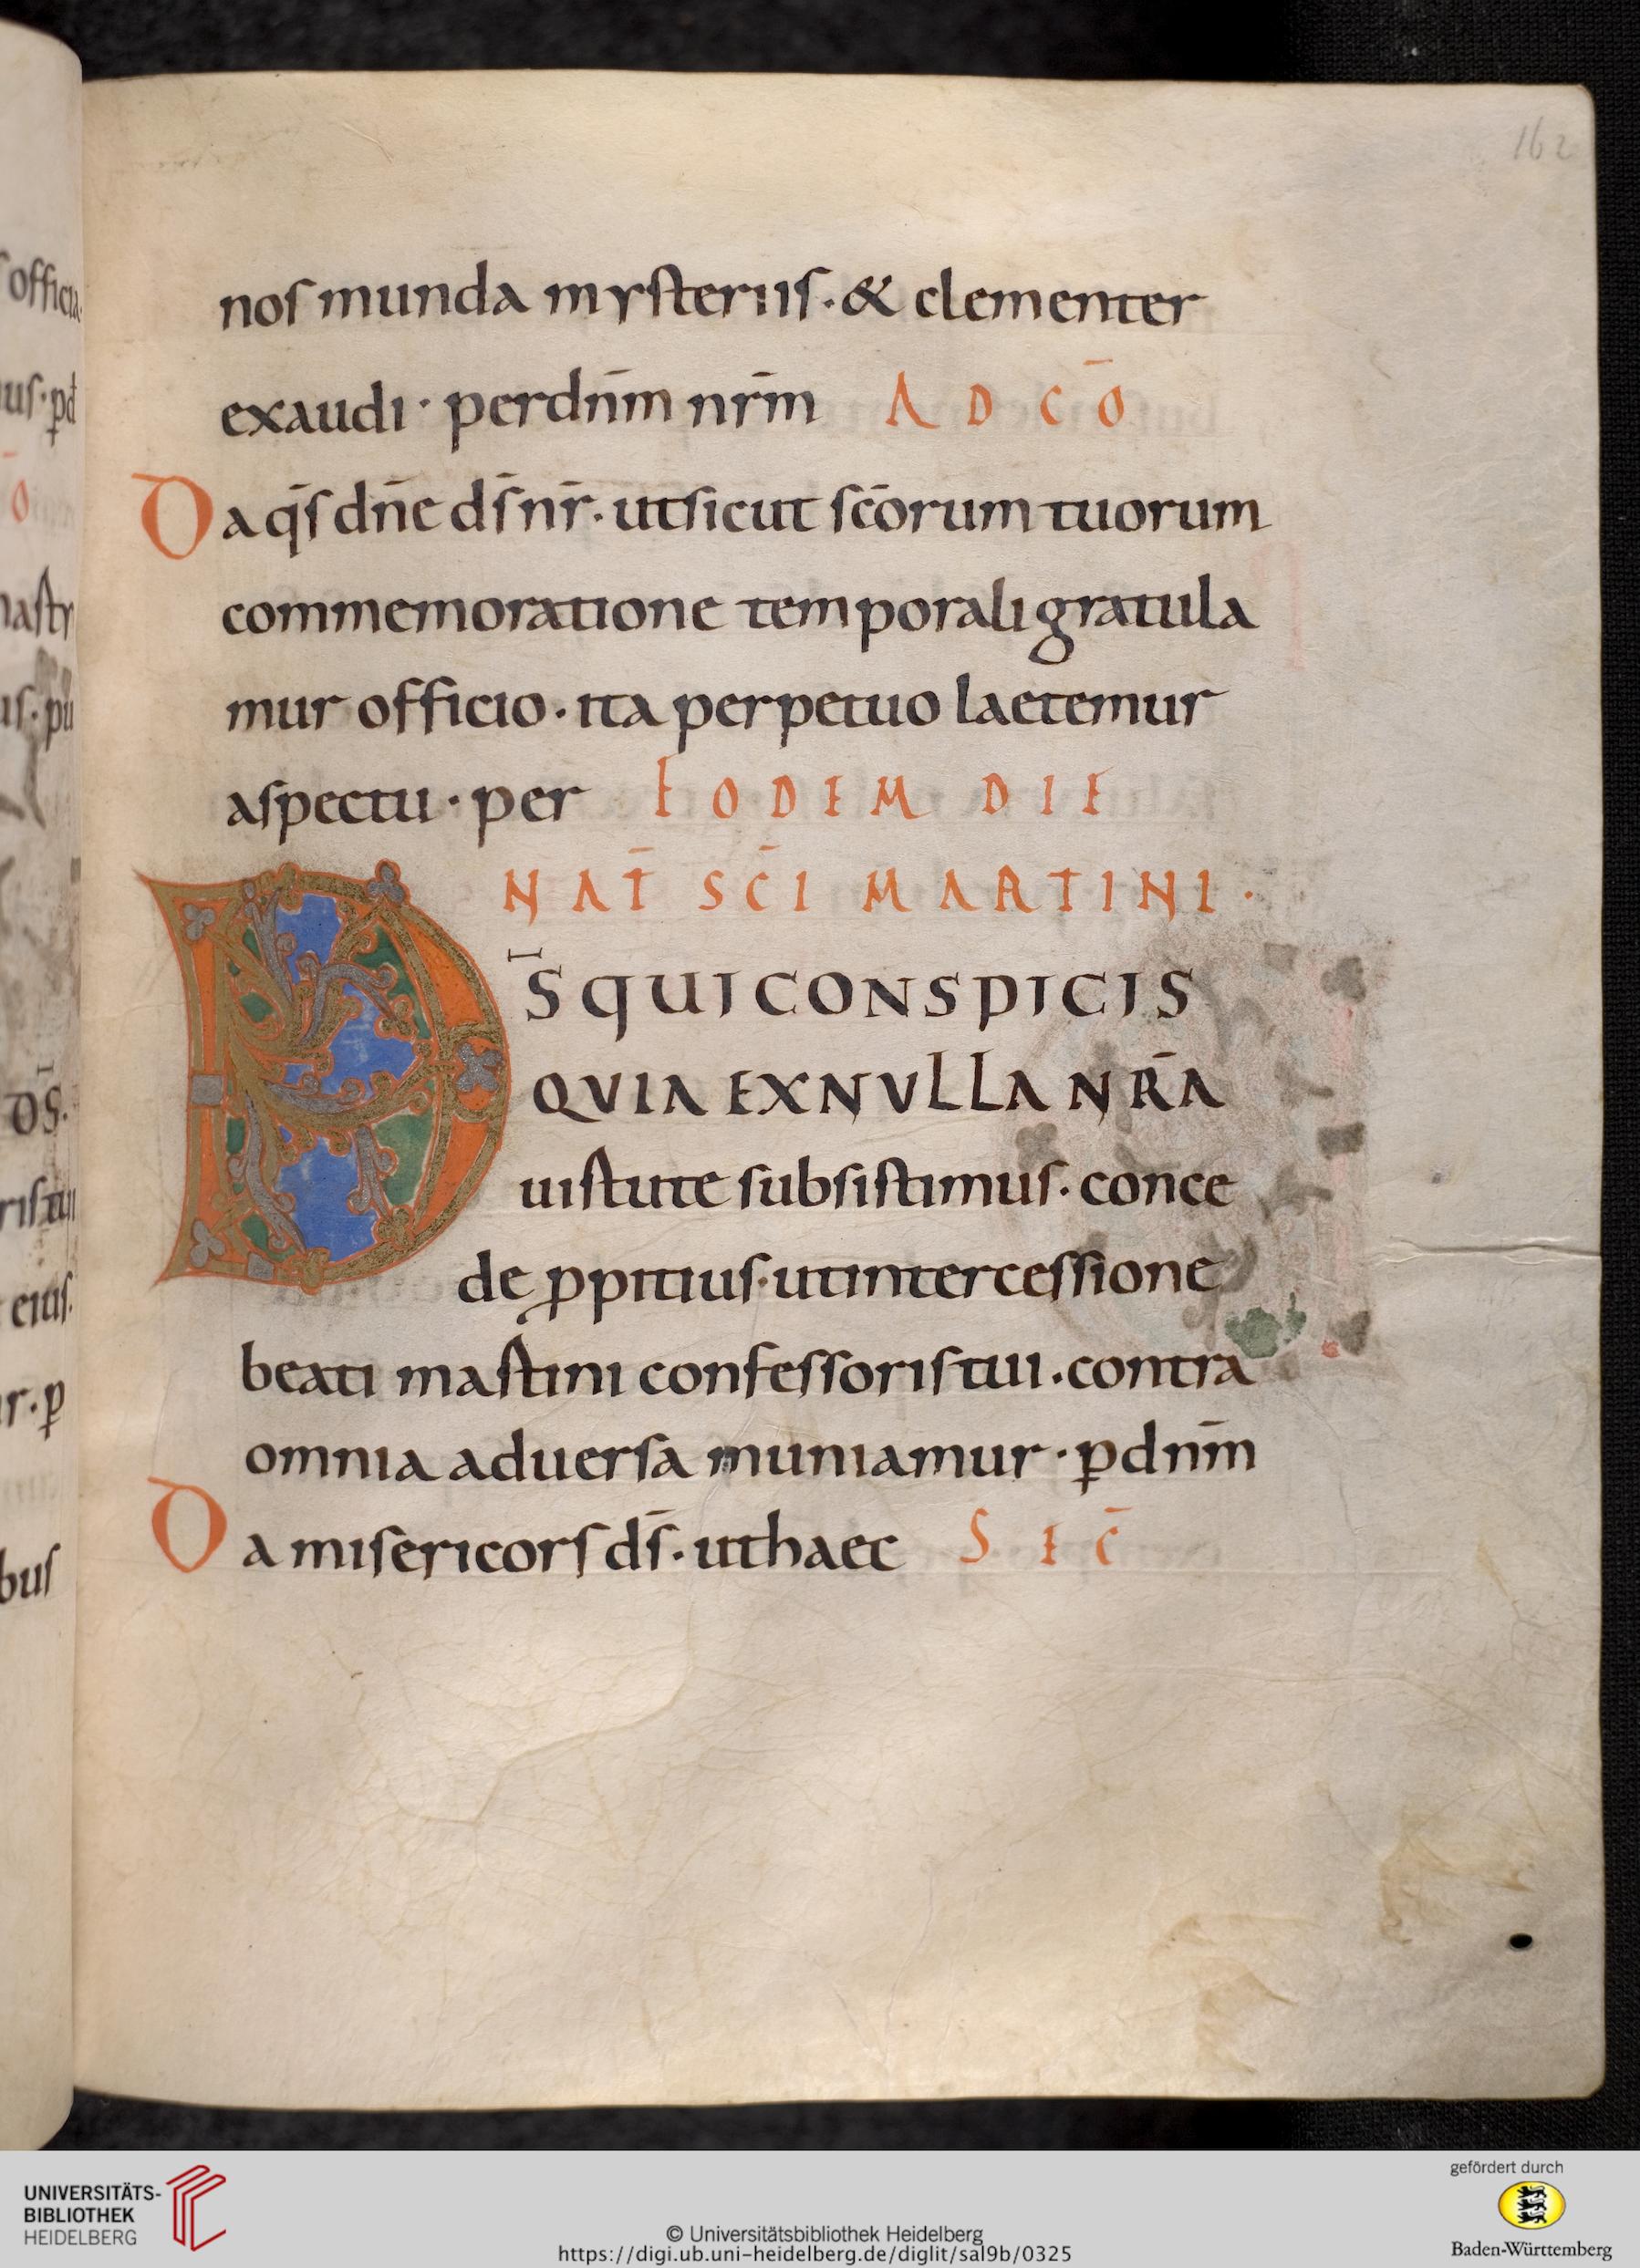 162
nos munda mysteriis · & clementer
exaudi · per dn̄m nr̄m A D C Ō
Da qs̄ dn̄e ds̄ nr̄ · ut sicut sc̄orum tuorum
commemoratione temporali gratula
mur officio · ita perpetuo laetemur
aspectu · per EODEM DIE
NAT̄ SC̄I MARTINI ·
D S̄ QUI CONSPICIS
QVIA EX NVLLA NR̄A
uirtute subsistimus · conce
de ꝓpitius · ut intercessione
beati martini confessoris tui · contra
omnia aduersa muniamur · ꝑ dn̄m
Da misericors ds̄ · ut haec S E C̄
UNIVERSITÄTS-
BIBLIOTHEK
HEIDELBERG
© Universitätsbibliothek Heidelberg
https://digi.ub.uni-heidelberg.de/diglit/sal9b/0325
gefördert durch
Baden-Württemberg